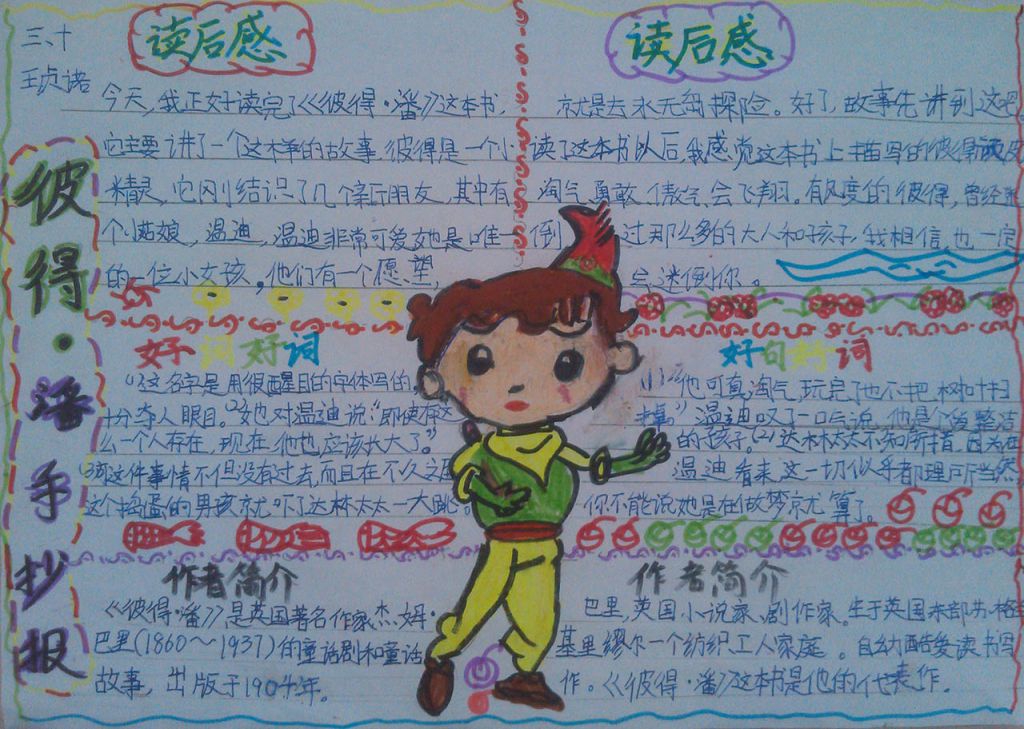 三、十
王贞诺
彼得·潘手抄报
读后感
今天,我正好读完了《彼得·潘》这本书,
它主要讲了一个这样的故事,彼得是一个小
精灵,它刚结识了几个新朋友,其中有
个姑娘,温迪,温迪非常可爱她是唯一
的一位小女孩。他们有一个愿望,
读后感
就是去永无岛探险。好了,故事先讲到这吧
读了这本书以后,我感觉这本书上描写的彼得
淘气、勇敢、傲气、会飞翔。有风度的彼得,曾经迷
倒 过那么多的大人和孩子,我相信也一定
会迷倒你。
好词好词
(1)这名字是用很醒目的字体写的,
十分夺人眼目。(2)她对温迪说:“即使有这
么一个人存在,现在,他也应该长大了。”
(3)可这件事情不但没有过去,而且在不久之后
这个捣蛋的男孩就吓了达林太太一大跳。
好句好词
(1)“他可真淘气,玩完了也不把树叶扫
掉。”温迪叹了一口气说,他是个爱整洁
的孩子。(2)达林太太不知所措,因为在
温迪看来,这一切似乎都理所当然
你不能说她是在做梦就算了。
作者简介
《彼得·潘》是英国著名作家杰·姆·
巴里(1860～1937)的童话剧和童话
故事,出版于1904年。
作者简介
巴里,英国小说家、剧作家。生于英国东部苏格
基里缪尔一个纺织工人家庭。自幼酷爱读书写
作。《彼得·潘》这本书是他的代表作。